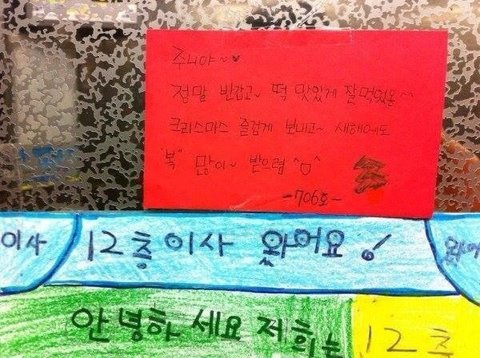 주니야~♥
정말 반갑고~ 떡 맛있게 잘먹었음^^
크리스마스 즐겁게 보내고~ 새해에도
"복" 많이~ 받으렴 ^o^
-706호-
이사
12층이사 왔어요!
왔어
안녕하세요 저희는 12층